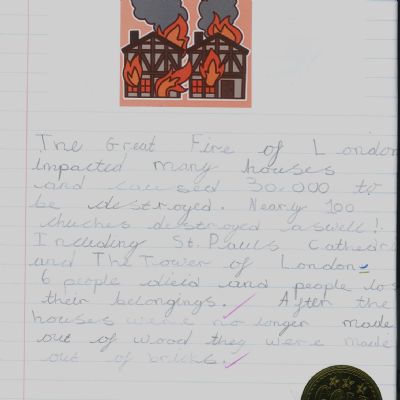 The Great Fire of London
impacted many houses
and caused 30.000 to
be destroyed. Nearly 100
chuches destroyed aswell!
Including St. Pauls Cathedr
and The Tower of London.
6 people dieid and people los
their belongings. After the
houses were no longer made
out of wood they were made
out of bricks.